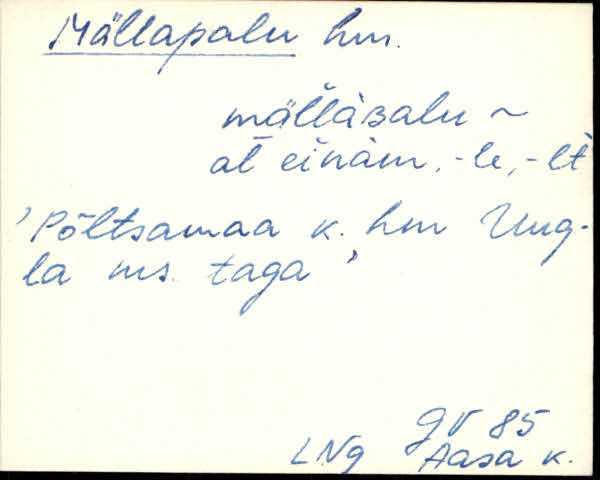 Mällapalu hm.
mällàʙalu ~
al einàm, -le, -lt
'Põltsamaa k. hm Ung-
la ms. taga'
GV 85
LNg Aasa k.